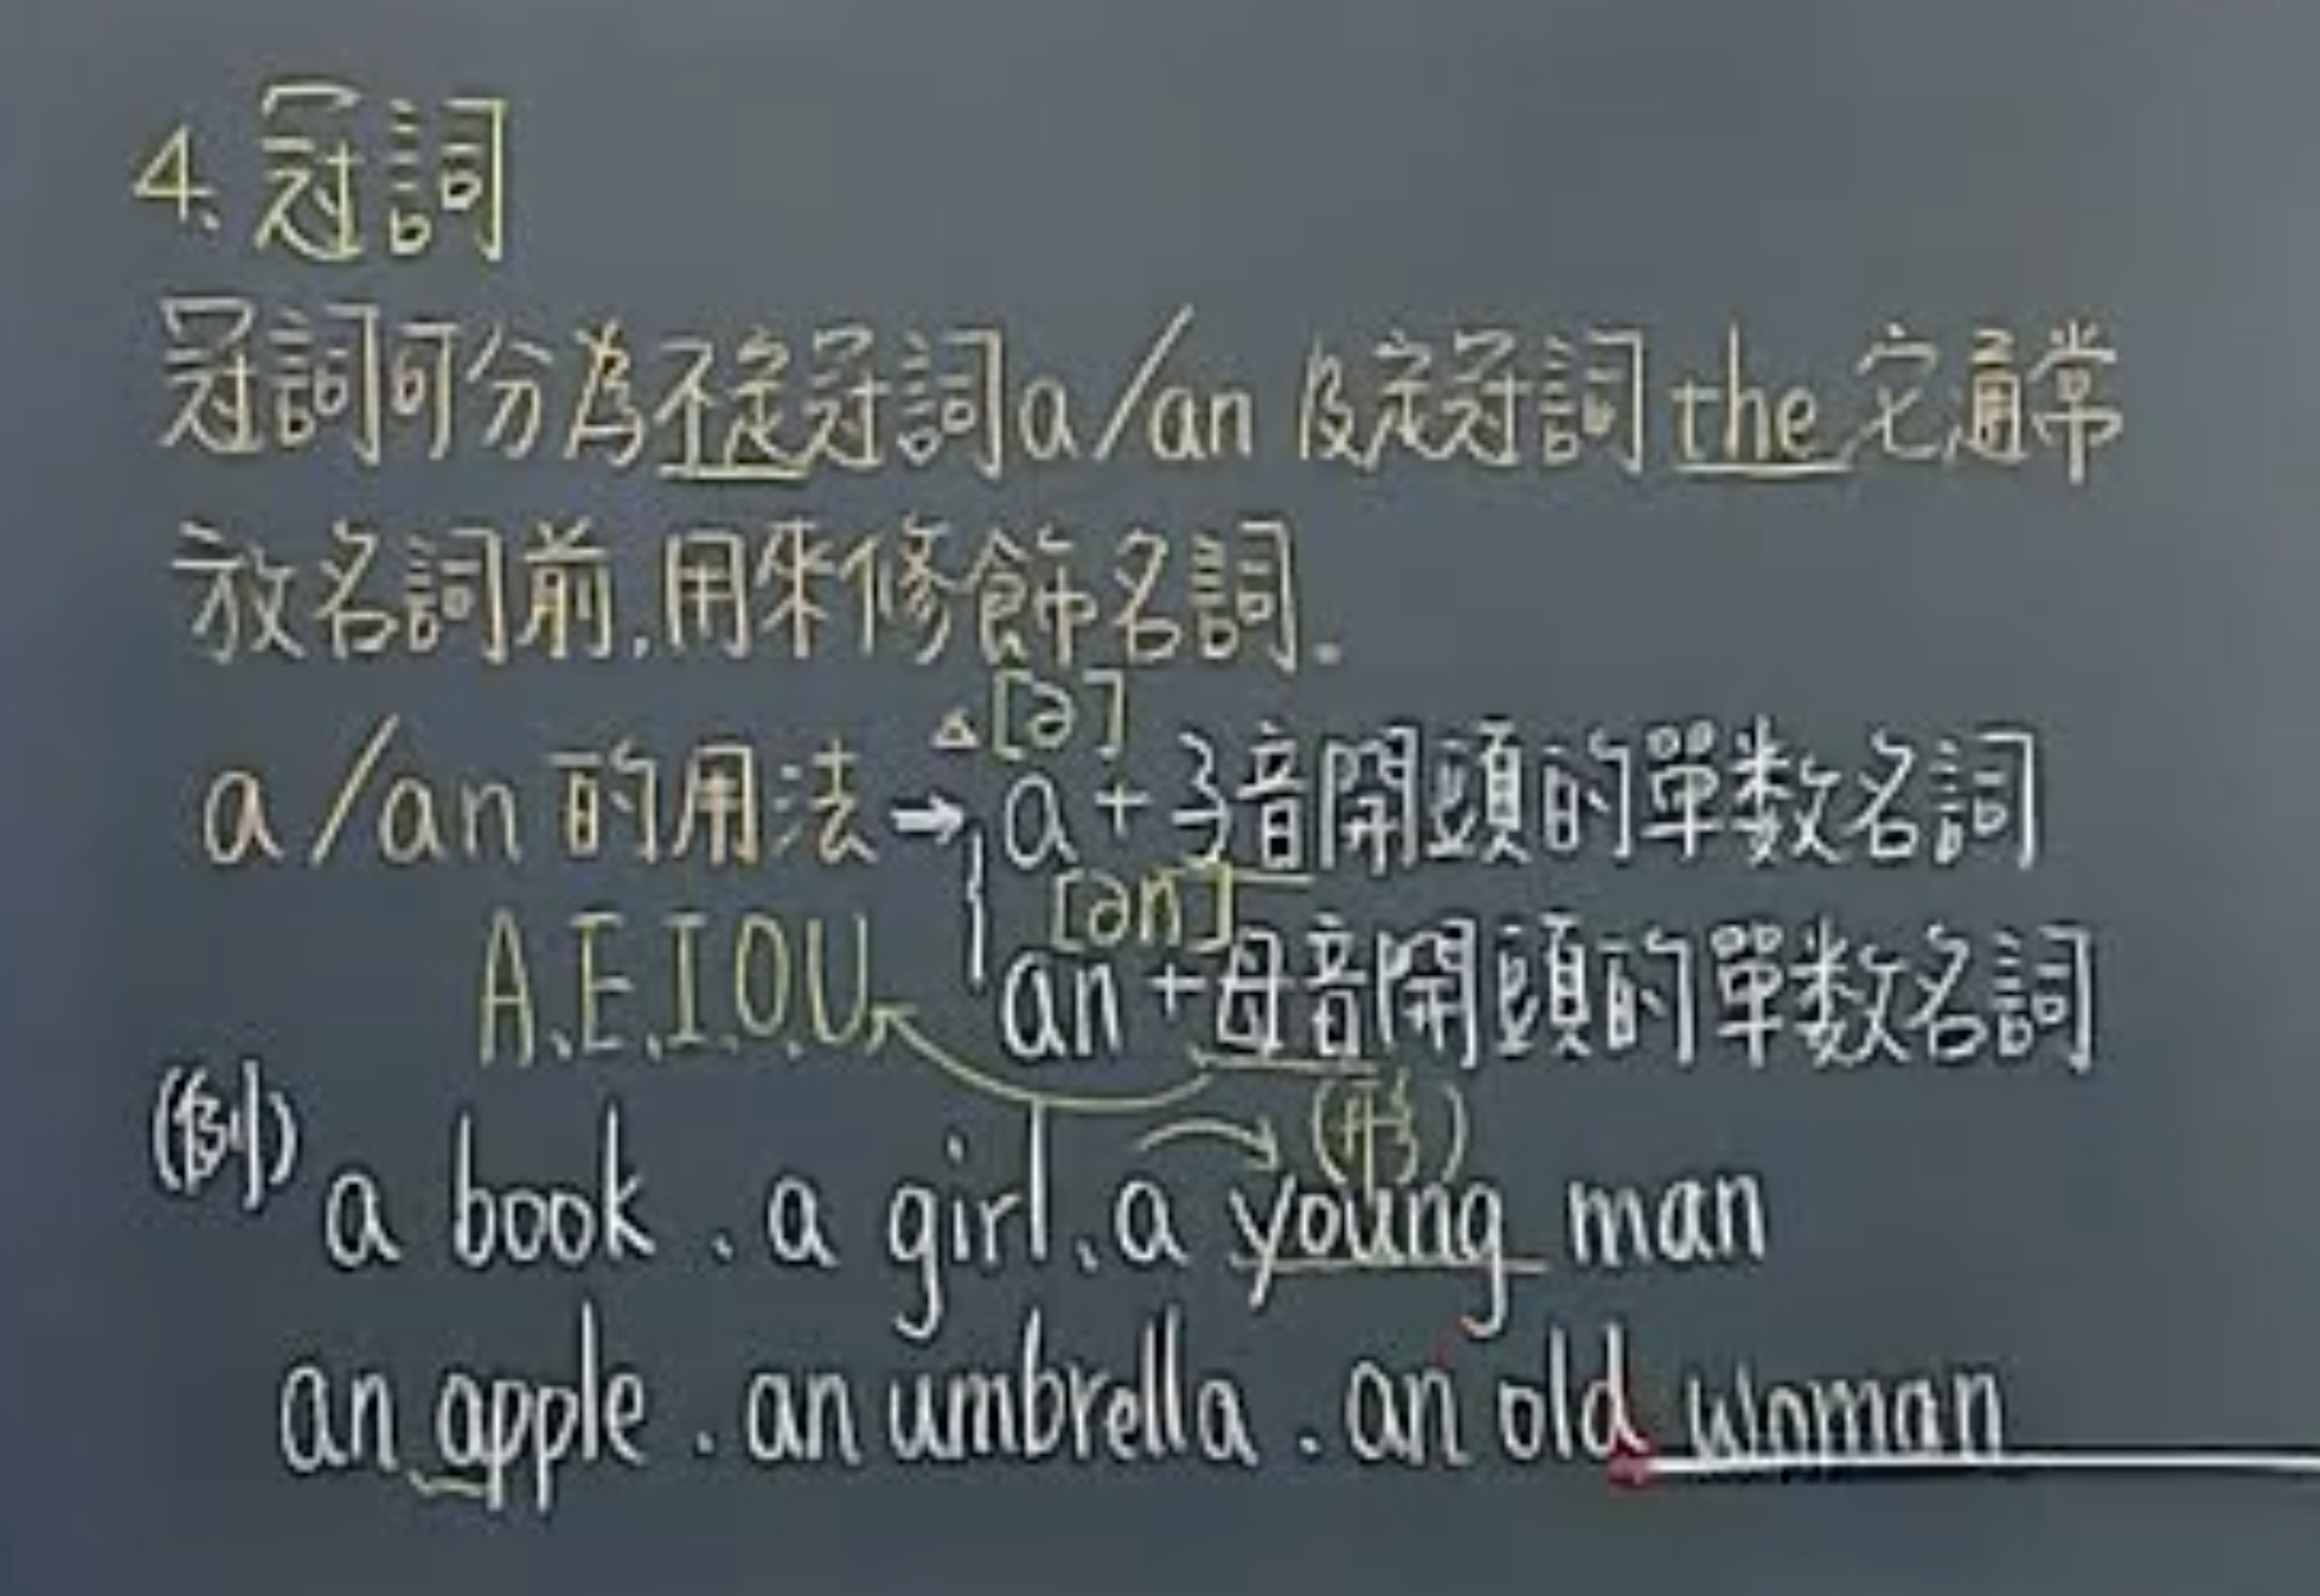 4、冠詞
冠詞可分為不定冠詞a/an 及定冠詞 the 它通常
放名詞前,用來修飾名詞。
△[ə]
a/an 的用法→a+子音開頭的單数名詞
[ən]
A、E、I、O、U an+母音開頭的單数名詞
(例) (形)
a book、a girl、a young man
an apple、an umbrella、an old woman